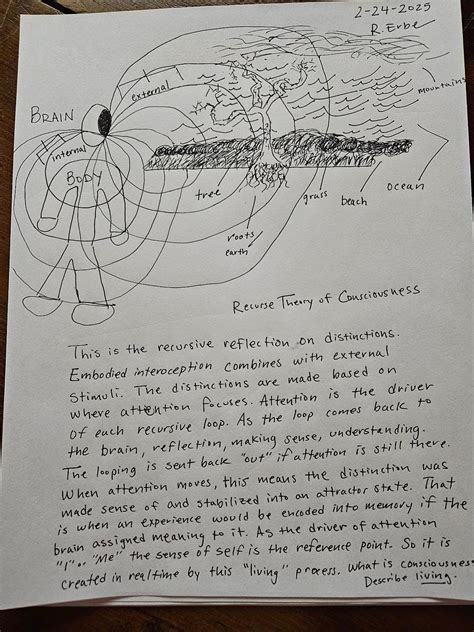 2-24-2025
R. Erbe
BRAIN
external
internal
BODY
mountains
tree
roots
earth
grass
beach
ocean
RECURSE THEORY OF CONSCIOUSNESS
This is the recursive reflection on distinctions.
Embodied interoception combines with external
stimuli. The distinctions are made based on
where attention focuses. Attention is the driver
of each recursive loop. As the loop comes back to
the brain, reflection, making sense, understanding.
The looping is sent back "out" if attention is still there.
When attention moves, this means the distinction was
made sense of and stabilized into an attractor state. That
is when an experience would be encoded into memory if the
brain assigned meaning to it. As the driver of attention
"I" or "Me" the sense of self is the reference point. So it is
created in realtime by this "living" process. What is consciousness
Describe living.